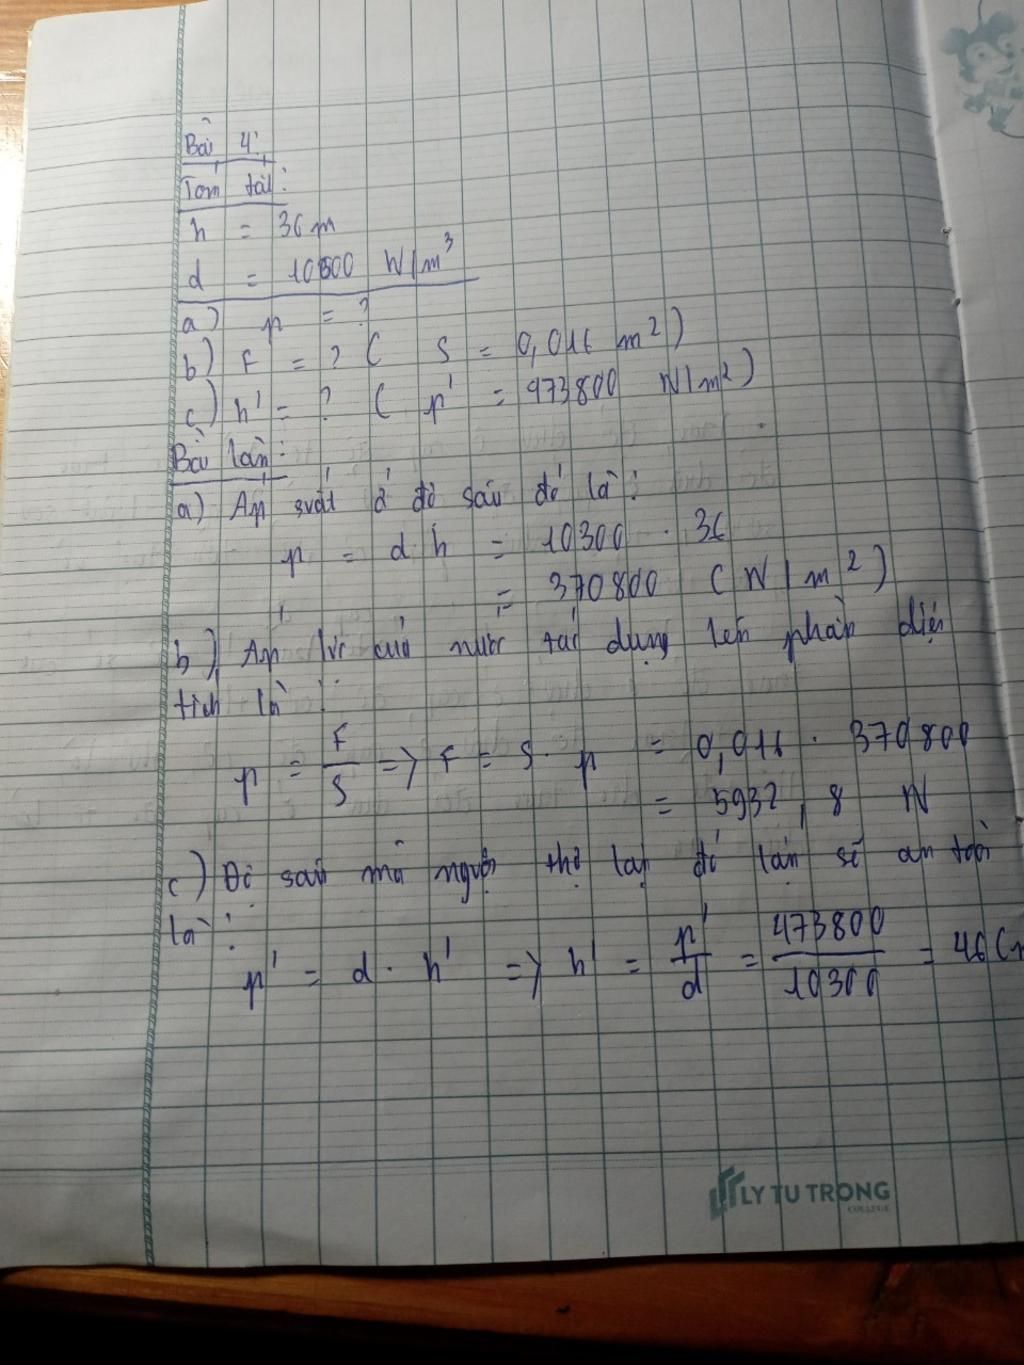 Bài 4:
Tóm tắt:
h = 36 m
d = 10300 N/m³
a) p = ?
b) F = ? ( S = 0,016 m²)
c) h' = ? ( p' = 473800 N/m²)
Bài làm:
a) Áp suất ở độ sâu đó là:
p = d.h = 10300 . 36
= 370800 (N/m²)
b) Áp lực của nước tác dụng lên phần diện
tích là:
p = F/S => F = S . p = 0,016 . 370800
= 5932,8 N
c) Độ sâu mà người thợ lặn đó lặn sẽ an toàn
là:
p' = d . h' => h' = p'/d = 473800/10300 = 46 (m
LY TU TRONG
COLLEGE